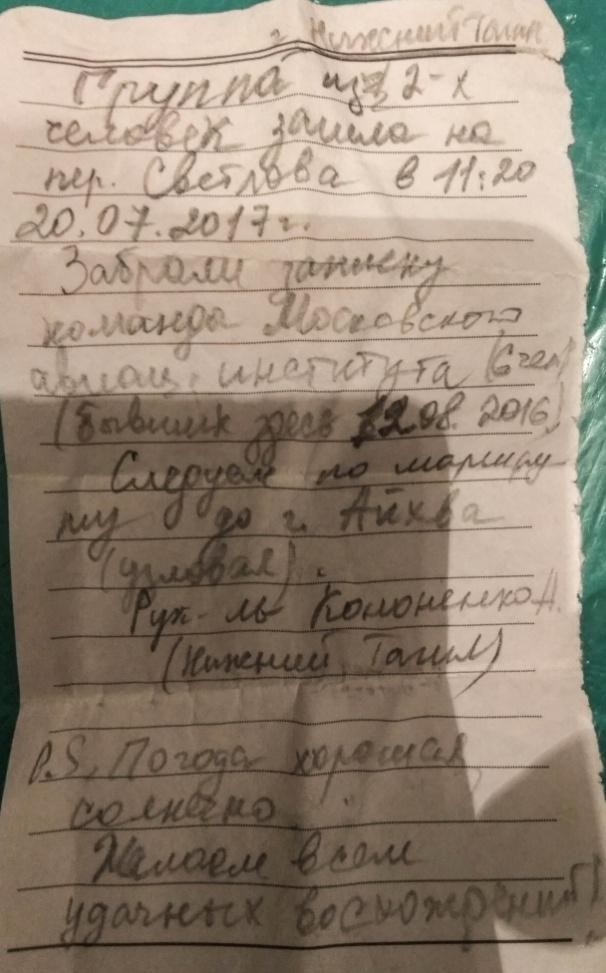 г. Нижний Тагил
Группа из 2-х
человек зашла на
пер. Светлова в 11:20
20.07.2017г.
Забрали записку
команда Московского
авиац. института (6 чел)
(бывших здесь 12.08.2016)
Следуем по маршру
ту до г. Айхва
(угловая).
Рук-ль Кононенко А.
(Нижний Тагил)
P.S. Погода хорошая,
солнечно
Желаем всем
удачных восхождений!